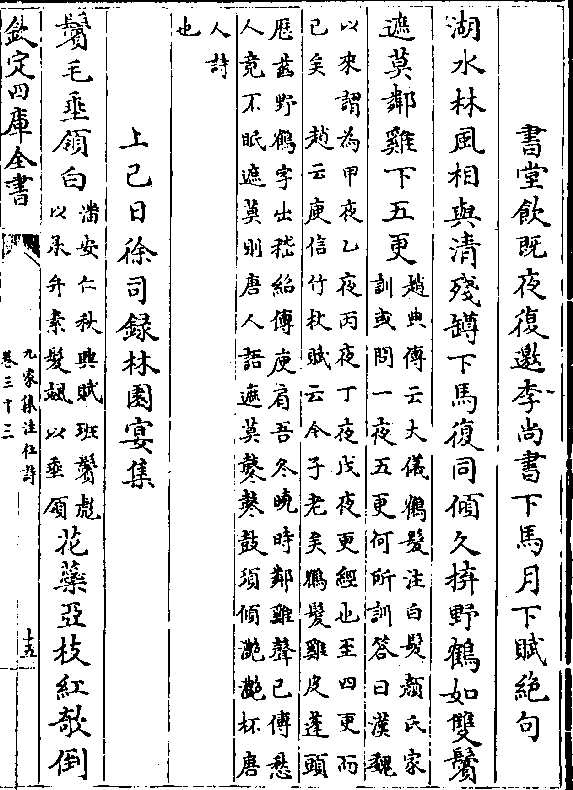 書堂飲既夜復邀李尚書下馬月下賦絶句
湖水林風相與清殘罇下馬復同傾久拚野鶴如雙鬢
遮莫鄰雞下五更
趙典傳云大儀鶴髮注白髮顔氏家
訓或問一夜五更何所訓答曰漢魏
以來謂為甲夜乙夜丙夜丁夜戊夜更經也至四更而
已矣 趙云庾信竹杖賦云今子老矣鶴髮雞皮蓬頭
厯齒野鶴字出嵇紹傳庾肩吾冬曉時鄰雞聲已傳愁
人竟不眠遮莫則唐人語遮莫鼕鼕鼓須傾灔灔杯唐
人詩
也
上巳日徐司録林園宴集
鬢毛垂領白
潘安仁秋興賦班鬢彪
以承弁素髮颯以垂領
花蘂亞枝紅欹倒
欽定四庫全書
九家集注杜詩
卷三十三
十五